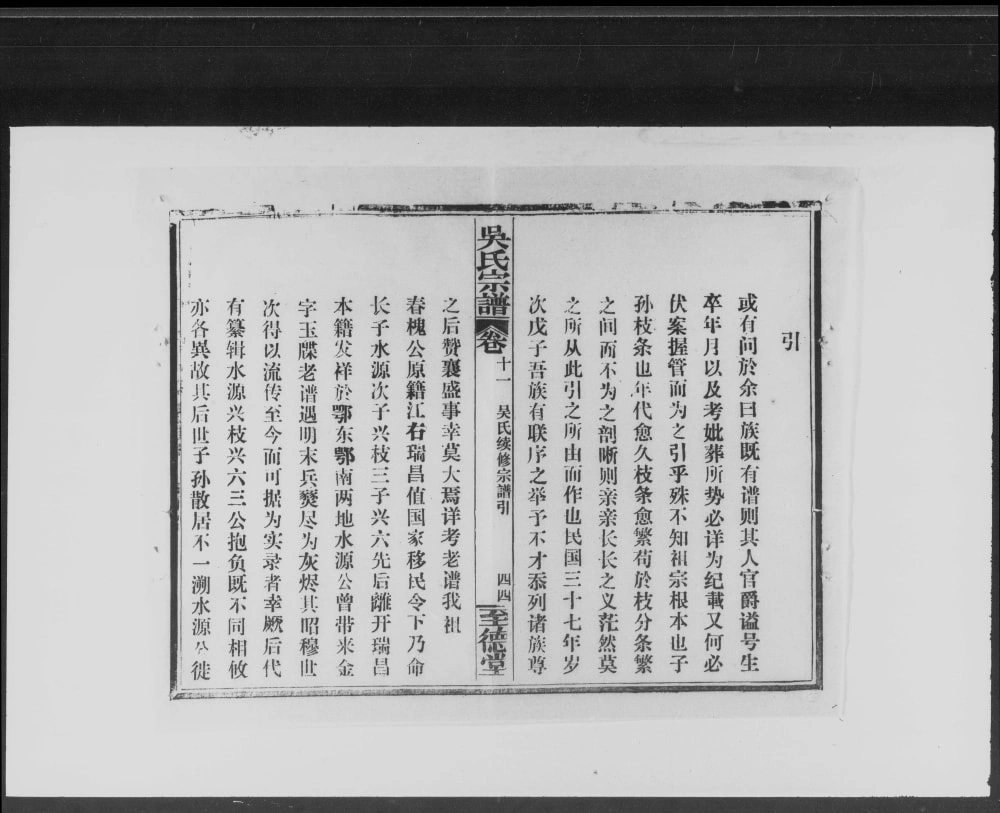 引
或有问於余曰族既有谱则其人官爵谥号生
卒年月以及考妣葬所势必详为纪載又何必
伏案握管而为之引乎殊不知祖宗根本也子
孙枝条也年代愈久枝条愈繁苟於枝分条繁
之间而不为之剖晰则亲亲长长之义茫然莫
之所从此引之所由而作也民国三十七年岁
次戊子吾族有联序之举予不才忝列诸族尊
吳氏宗譜 卷十一 吴氏续修宗譜引 四四 至德堂
之后赞襄盛事幸莫大焉详考老谱我祖
春槐公原籍江右瑞昌值国家移民令下乃命
长子水源次子兴枝三子兴六先后離开瑞昌
本籍发祥於鄂东鄂南两地水源公曾带来金
字玉牒老谱遇明末兵燹尽为灰烬其昭穆世
次得以流传至今而可据为实录者幸厥后代
有纂辑水源兴枝兴六三公抱负既不同相攸
亦各異故其后世子孙散居不一溯水源公徙